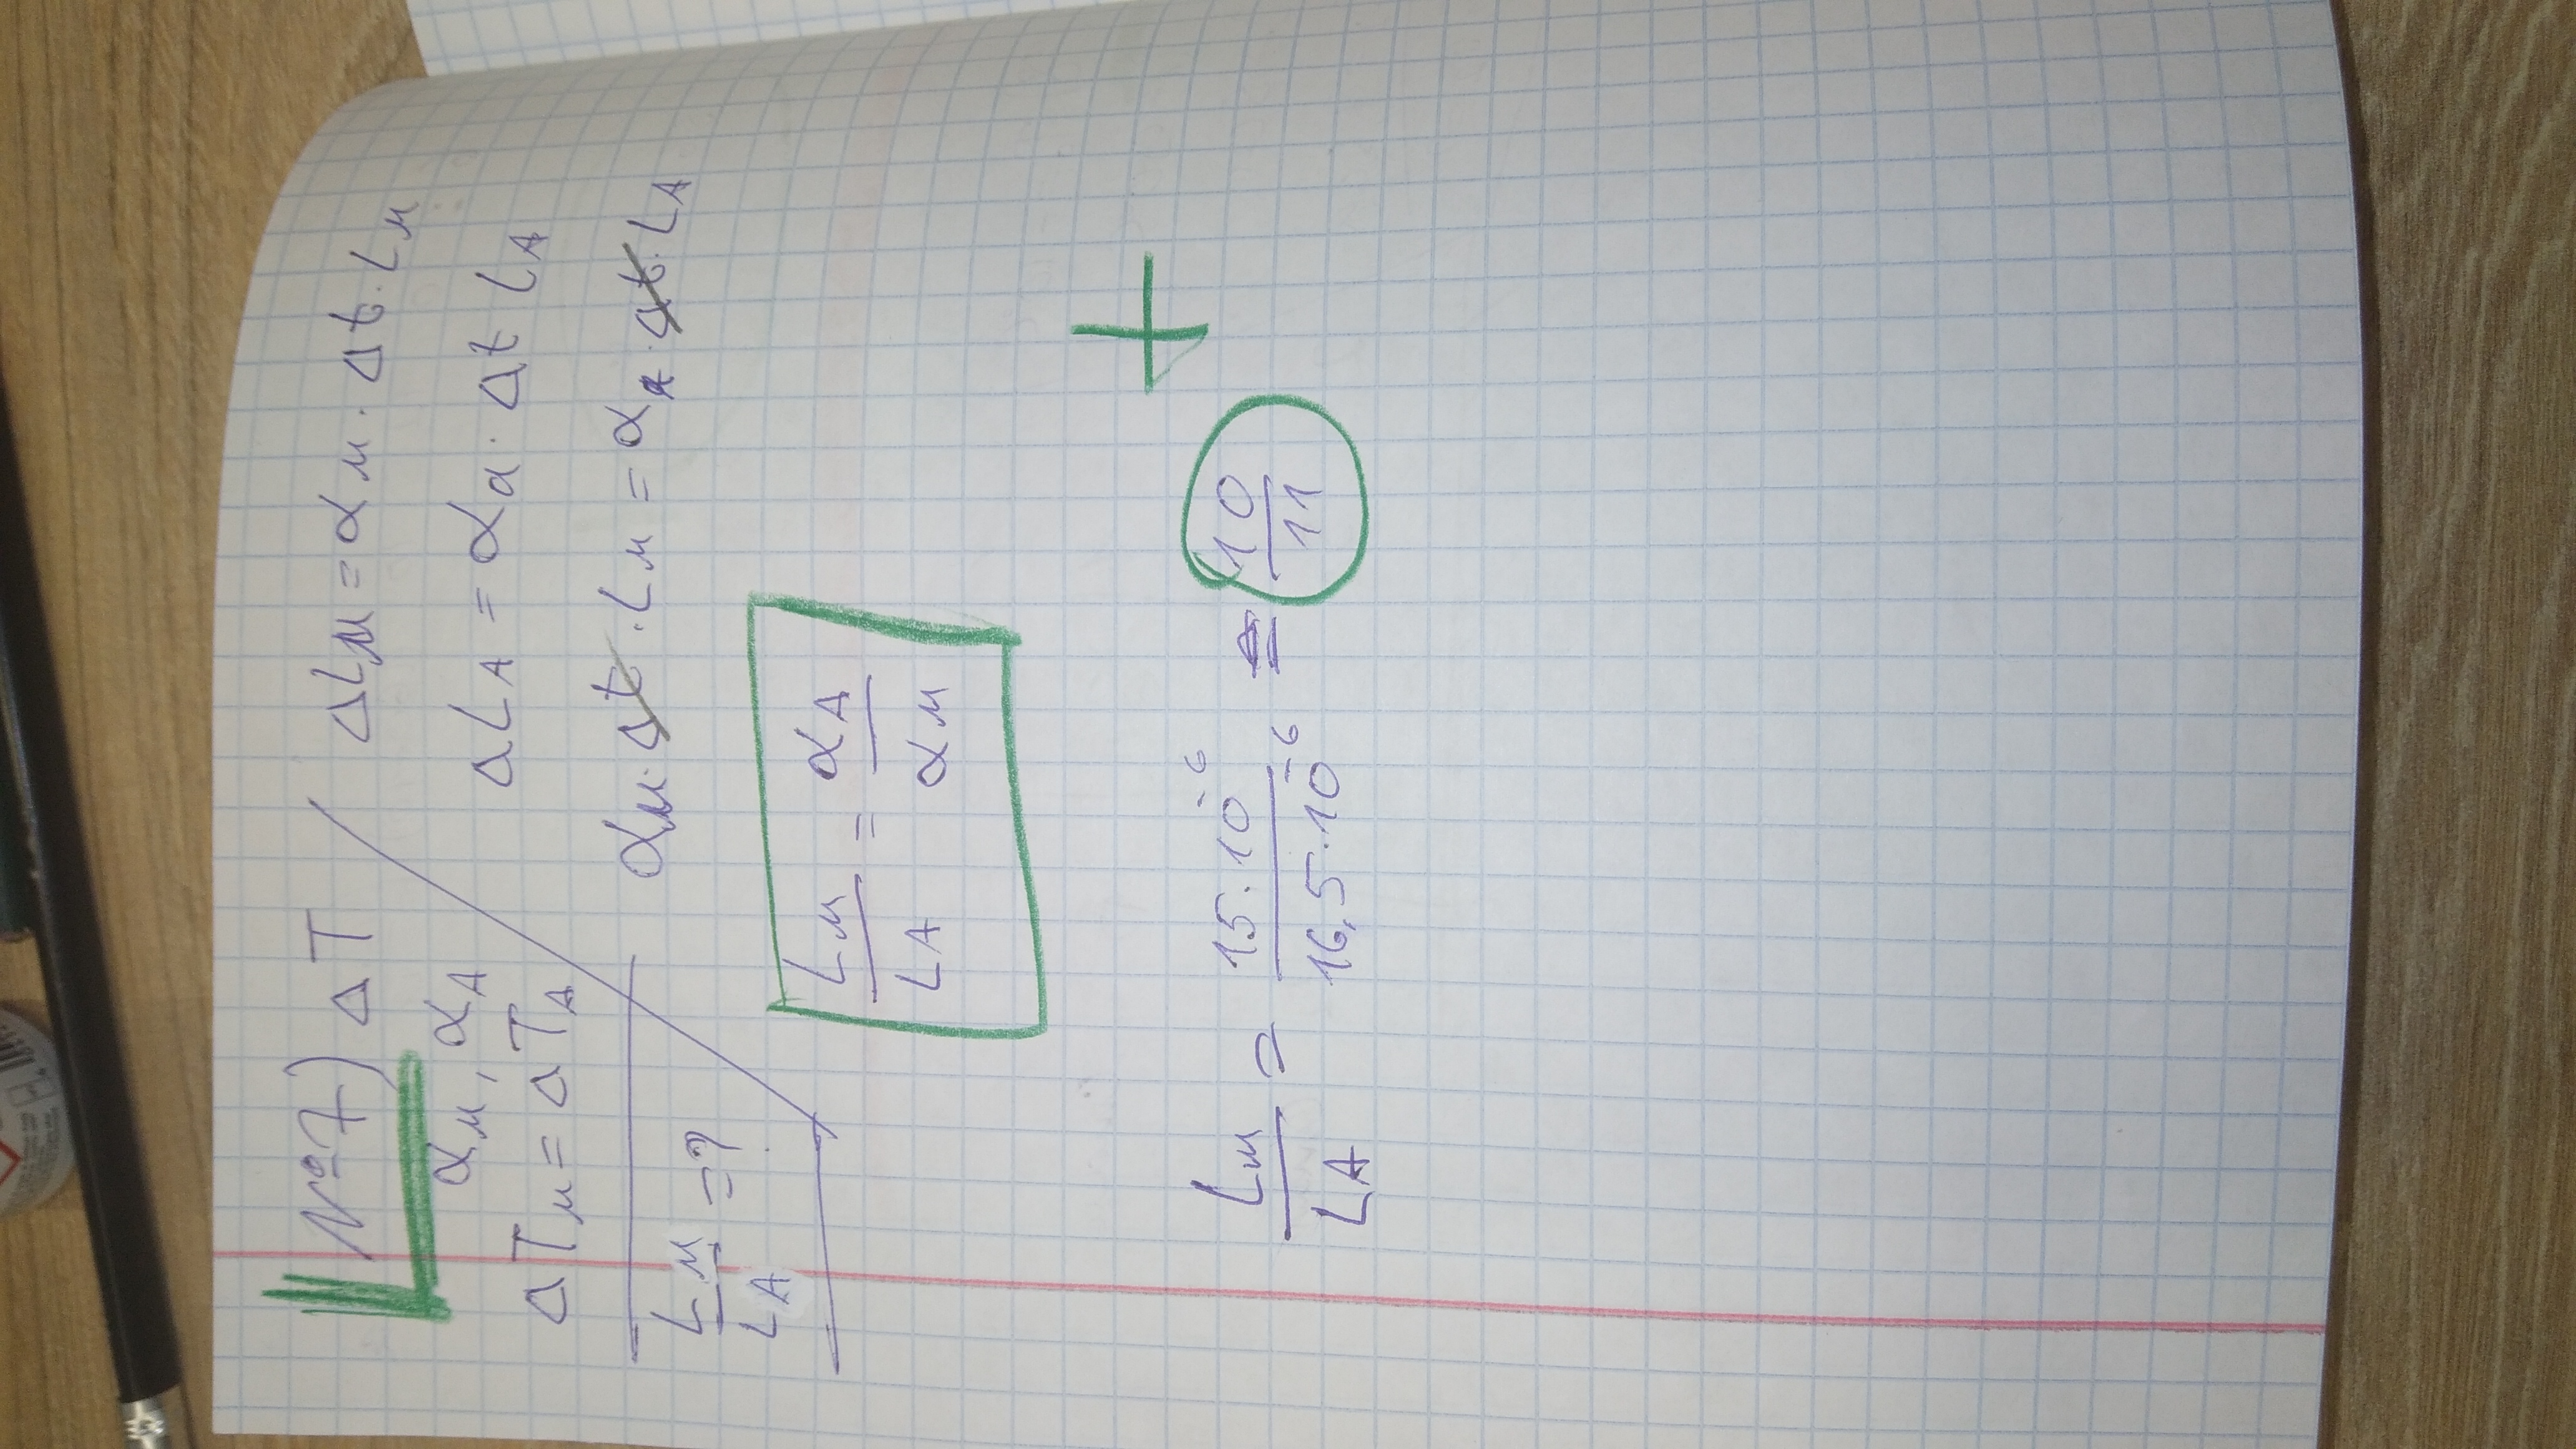 №7) ΔT
αм, αA
ΔTм = ΔTA
Lм/LA = ?
ΔLм = αм · Δt · Lм
ΔLA = αa · Δt LA
αм · Δt · Lм = αA · Δt · LA
Lм/LA = αA/αм
+
Lм/LA = 15·10⁻⁶/16,5·10⁻⁶ = 10/11